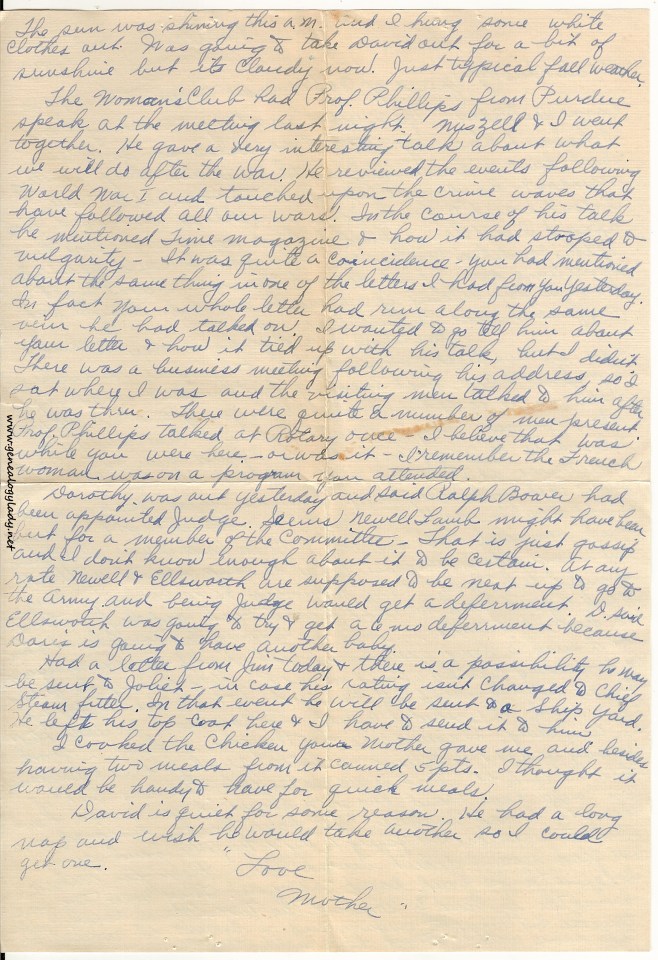 The sun was shining this a.m. and I hung some white
clothes out. Was going to take David out for a bit of
sunshine but its cloudy now. Just typical fall weather.
The Woman's Club had Prof. Phillips from Purdue
speak at the meeting last night. Mrs Zell & I went
together. He gave a very interesting talk about what
we will do after the war. He reviewed the events following
World War I and touched upon the crime waves that
have followed all our wars. In the course of his talk
he mentioned Time magazine & how it had stooped to
vulgarity - It was quite a coincidence - you had mentioned
about the same thing in one of the letters I had from you yesterday.
In fact your whole letter had run along the same
vein he had talked on. I wanted to go tell him about
your letter & how it tied up with his talk, but I didn't.
There was a business meeting following his address, so I
sat where I was and the visiting men talked to him after
he was thru. There were quite a number of men present
Prof. Phillips talked at Rotary once - I believe that was
while you were here - or was it - I remember the French
woman was on a program you attended.
Dorothy was out yesterday and said Ralph Bower had
been appointed Judge. Seems Newell Lamb might have been
but for a member of the Committee - That is just gossip
and I don't know enough about it to be certain. At any
rate Newell & Ellsworth are supposed to be next up to go to
the Army and being Judge would get a deferrment. D. said
Ellsworth was going to try & get a 6 mo deferrment because
Doris is going to have another baby.
Had a letter from Jim today & there is a possibility he may
be sent to Joliet - in case his rating isn't changed to Chief
Steam fitter. In that event he will be sent to a Ship yard.
He left his top coat here & I have to send it to him
I cooked the chicken your Mother gave me and besides
having two meals from it canned 5 pts. I thought it
would be handy to have for quick meals
David is quiet for some reason. He had a long
nap and wish he would take another so I could
get one. "Love
Mother"
www.genealogylady.net